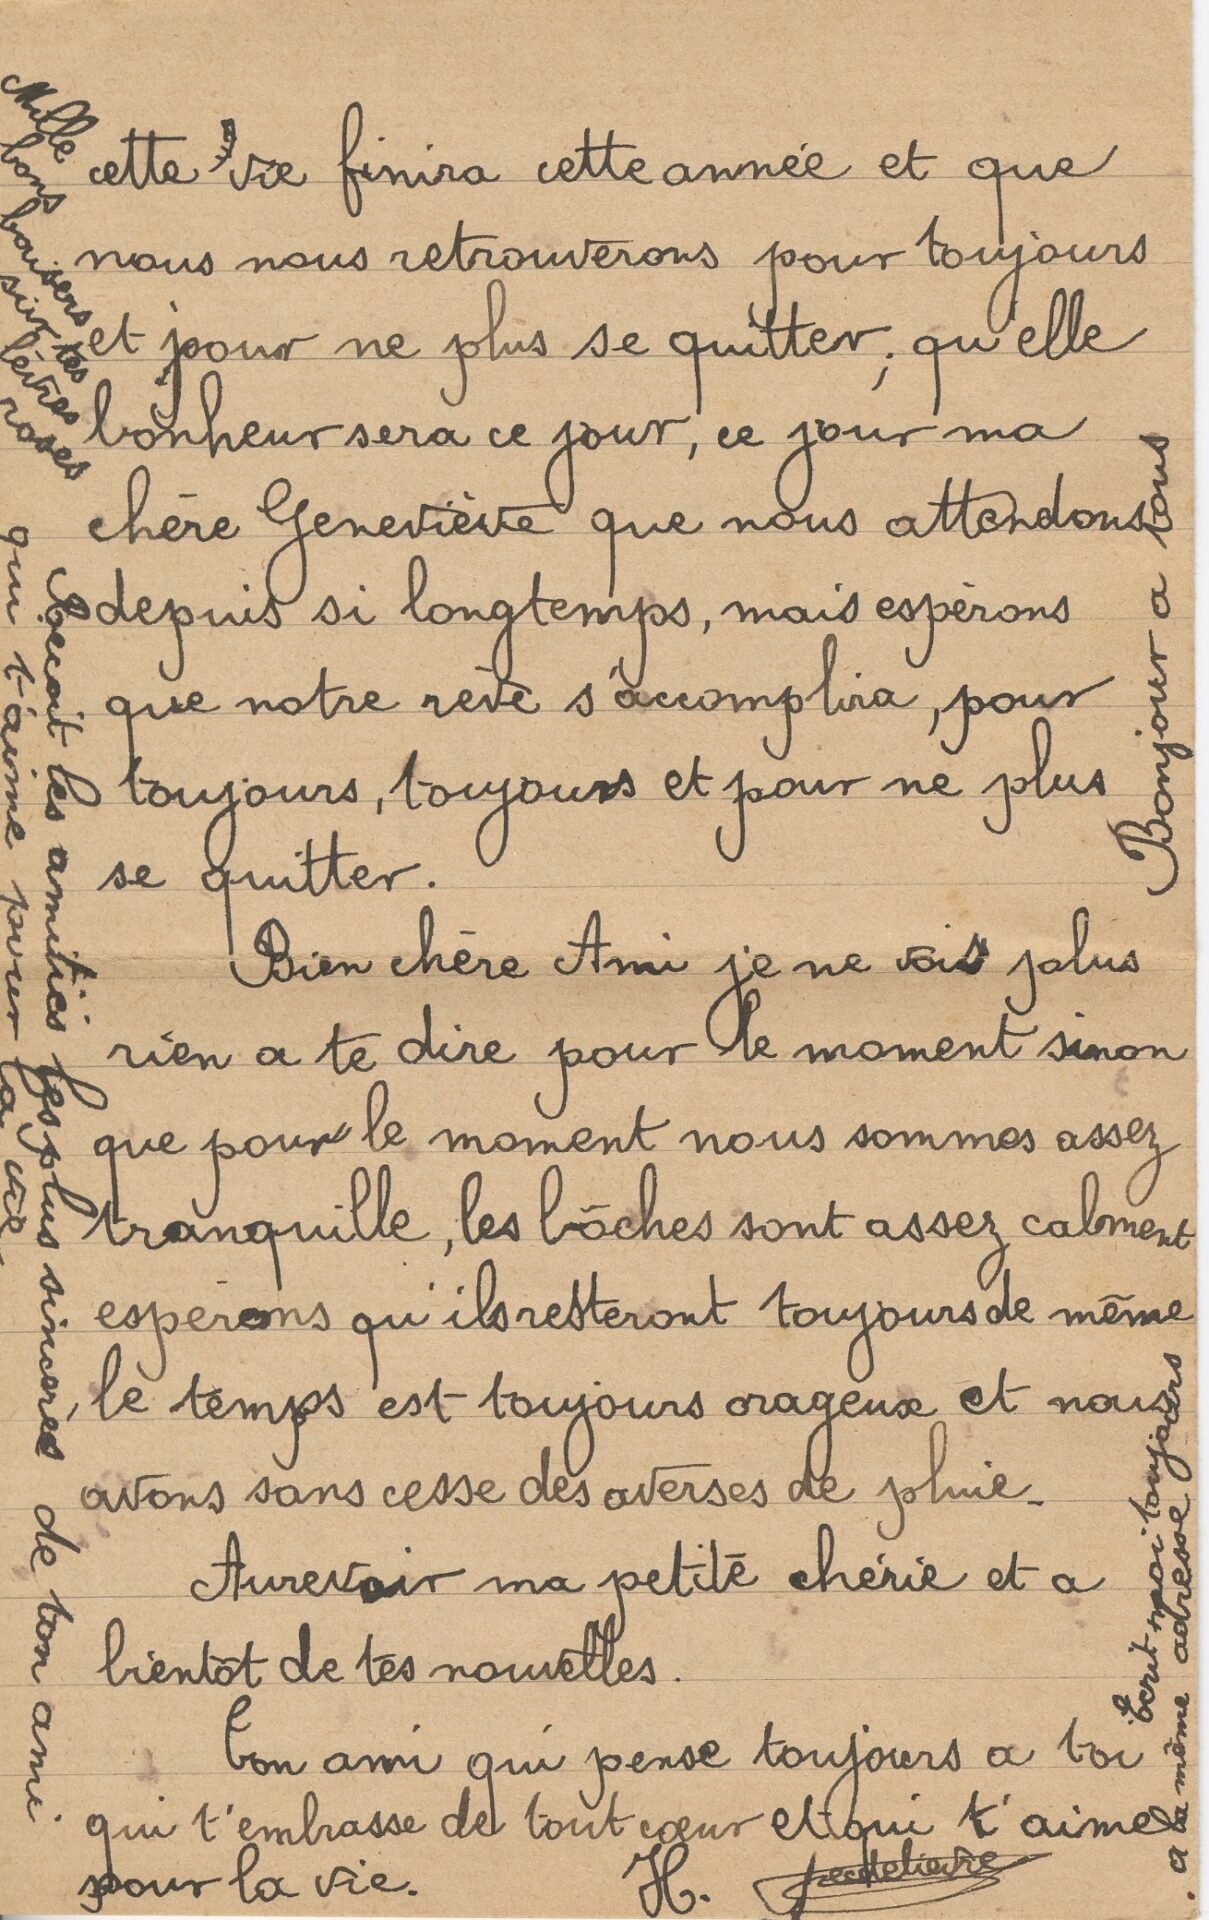 cette vie finira cette année et que
nous nous retrouverons pour toujours
et pour ne plus se quitter, qu'elle
bonheur sera ce jour, ce jour ma
chère Geneviève que nous attendons
depuis si longtemps, mais espèrons
que notre rève s'accomplira, pour
toujours, toujours et pour ne plus
se quitter.
Bien chère Ami je ne vois plus
rien a te dire pour le moment sinon
que pour le moment nous sommes assez
tranquille, les bôches sont assez calment
espérons qu'ils resteront toujours de même
le temps est toujours orageux et nous
avons sans cesse des averses de pluie.
Aurevoir ma petite chérie et a
bientôt de tes nouvelles.
Ton ami qui pense toujours a toi
qui t'embrasse de tout cœur et qui t'aime
pour la vie.
H.
Mille
bons
baisers
sur tes
lèvres
roses
Recoit les amitiés les plus sincères de ton ami
qui t'aime pour la vie
Bonjour a tous
Ecrit moi toujours
a la même adresse